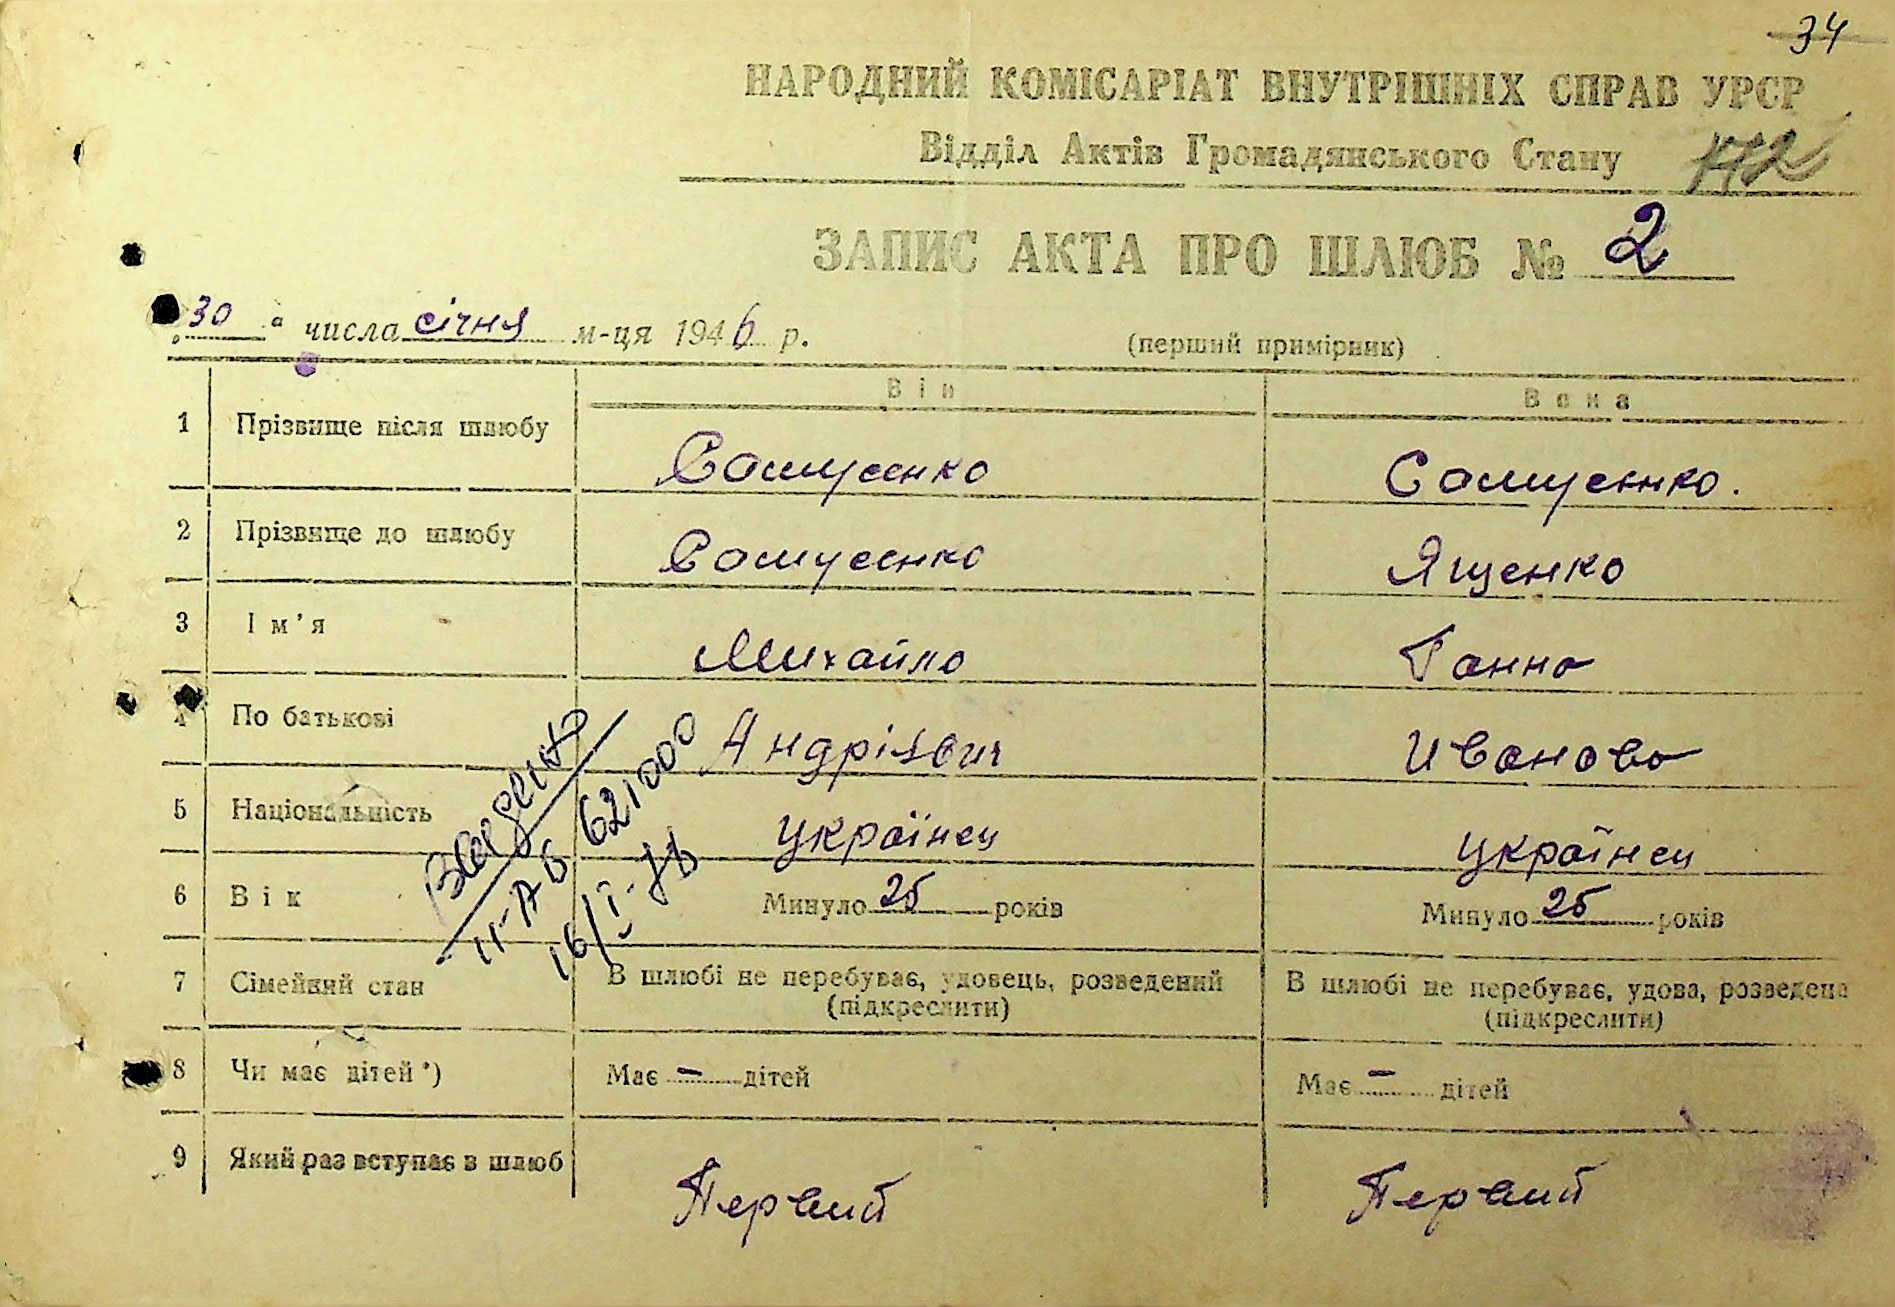 34
НАРОДНИЙ КОМІСАРІАТ ВНУТРІШНІХ СПРАВ УРСР
Відділ Актів Громадянського Стану
ЗАПИС АКТА ПРО ШЛЮБ № 2
„30“ числа січня м-ця 1946 р. (перший примірник)
Він Вона
1 Прізвище після шлюбу Самусенко Самусенко.
2 Прізвище до шлюбу Самусенко Ященко
3 Ім'я Михайло Ганна
4 По батькові Андріявич Ивановa
5 Національність українец українец
6 Вік Минуло 25 років Минуло 25 років
7 Сімейний стан В шлюбі не перебуває, удовець, розведений (підкреслити) В шлюбі не перебуває, удова, розведена (підкреслити)
8 Чи має дітей*) Має – дітей Має – дітей
9 Який раз вступає в шлюб Первий Первий
II-АБ 621000
16/I-7